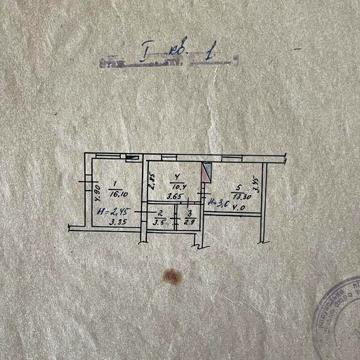 I кв. 1
1
16,10
4.90
H=2,45
3.25
2.85
4
10,4
3.65
2
3.5
3
2.9
5
13,30
3.45
H=3,6
4.0